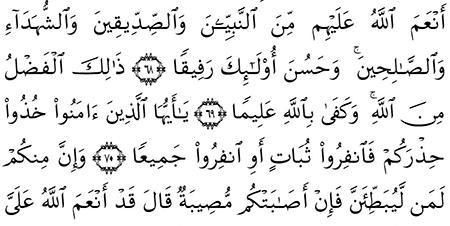 أَنْعَمَ ٱللَّهُ عَلَيْهِم مِّنَ ٱلنَّبِيِّـۧنَ وَٱلصِّدِّيقِينَ وَٱلشُّهَدَآءِ
وَٱلصَّـٰلِحِينَ ۚ وَحَسُنَ أُو۟لَـٰٓئِكَ رَفِيقًا ﴿٦٨﴾ ذَٰلِكَ ٱلْفَضْلُ
مِنَ ٱللَّهِ ۚ وَكَفَىٰ بِٱللَّهِ عَلِيمًا ﴿٦٩﴾ يَـٰٓأَيُّهَا ٱلَّذِينَ ءَامَنُوا۟ خُذُوا۟
حِذْرَكُمْ فَٱنفِرُوا۟ ثُبَاتٍ أَوِ ٱنفِرُوا۟ جَمِيعًا ﴿٧٠﴾ وَإِنَّ مِنكُمْ
لَمَن لَّيُبَطِّئَنَّ فَإِنْ أَصَـٰبَتْكُم مُّصِيبَةٌ قَالَ قَدْ أَنْعَمَ ٱللَّهُ عَلَىَّ